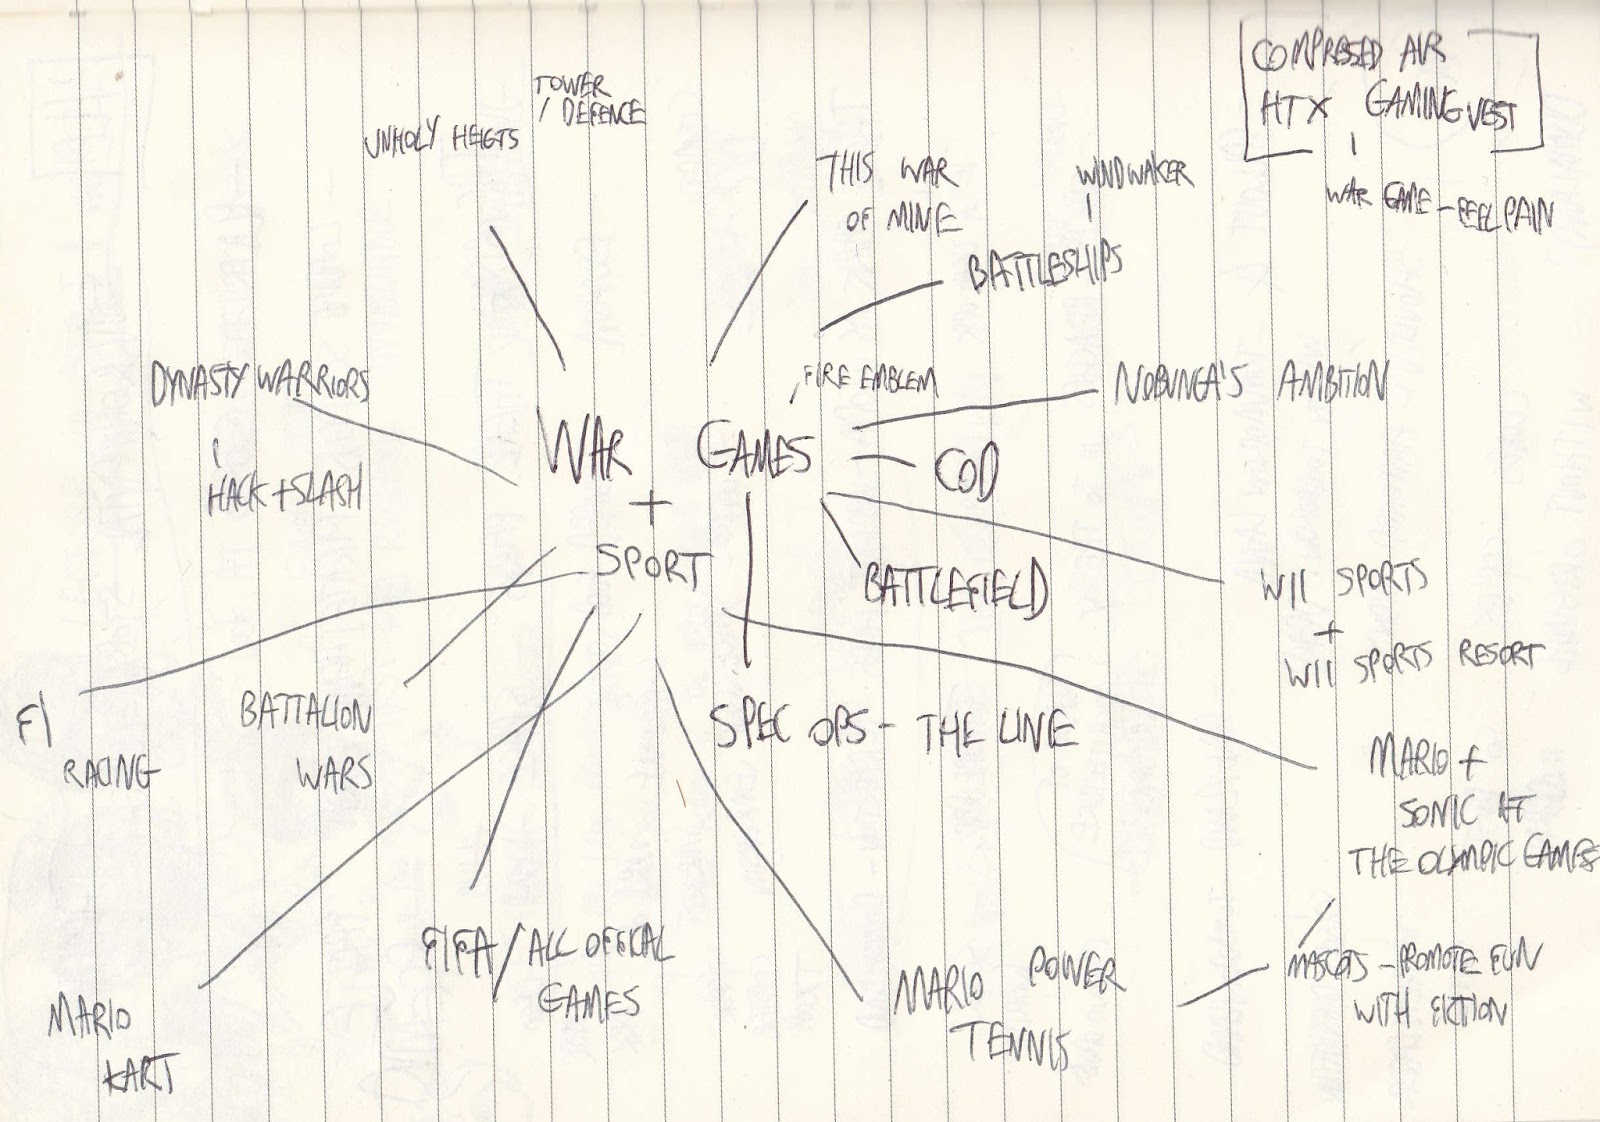 COMPRESSED AIR
HTX GAMING VEST
WAR GAME - FEEL PAIN
TOWER
/ DEFENCE
UNHOLY HEIGTS
THIS WAR
OF MINE
WINDWAKER
BATTLESHIPS
DYNASTY WARRIORS
HACK + SLASH
FIRE EMBLEM
NOBUNGA'S AMBITION
WAR GAMES
+
SPORT
COD
BATTLEFIELD
WII SPORTS
+
WII SPORTS RESORT
F1
RACING
BATTALION
WARS
SPEC OPS - THE LINE
MARIO +
SONIC AT
THE OLYMPIC GAMES
FIFA / ALL OFFICAL
GAMES
MARIO POWER
TENNIS
MASCOTS - PROMOTE FUN
WITH FICTION
MARIO
KART